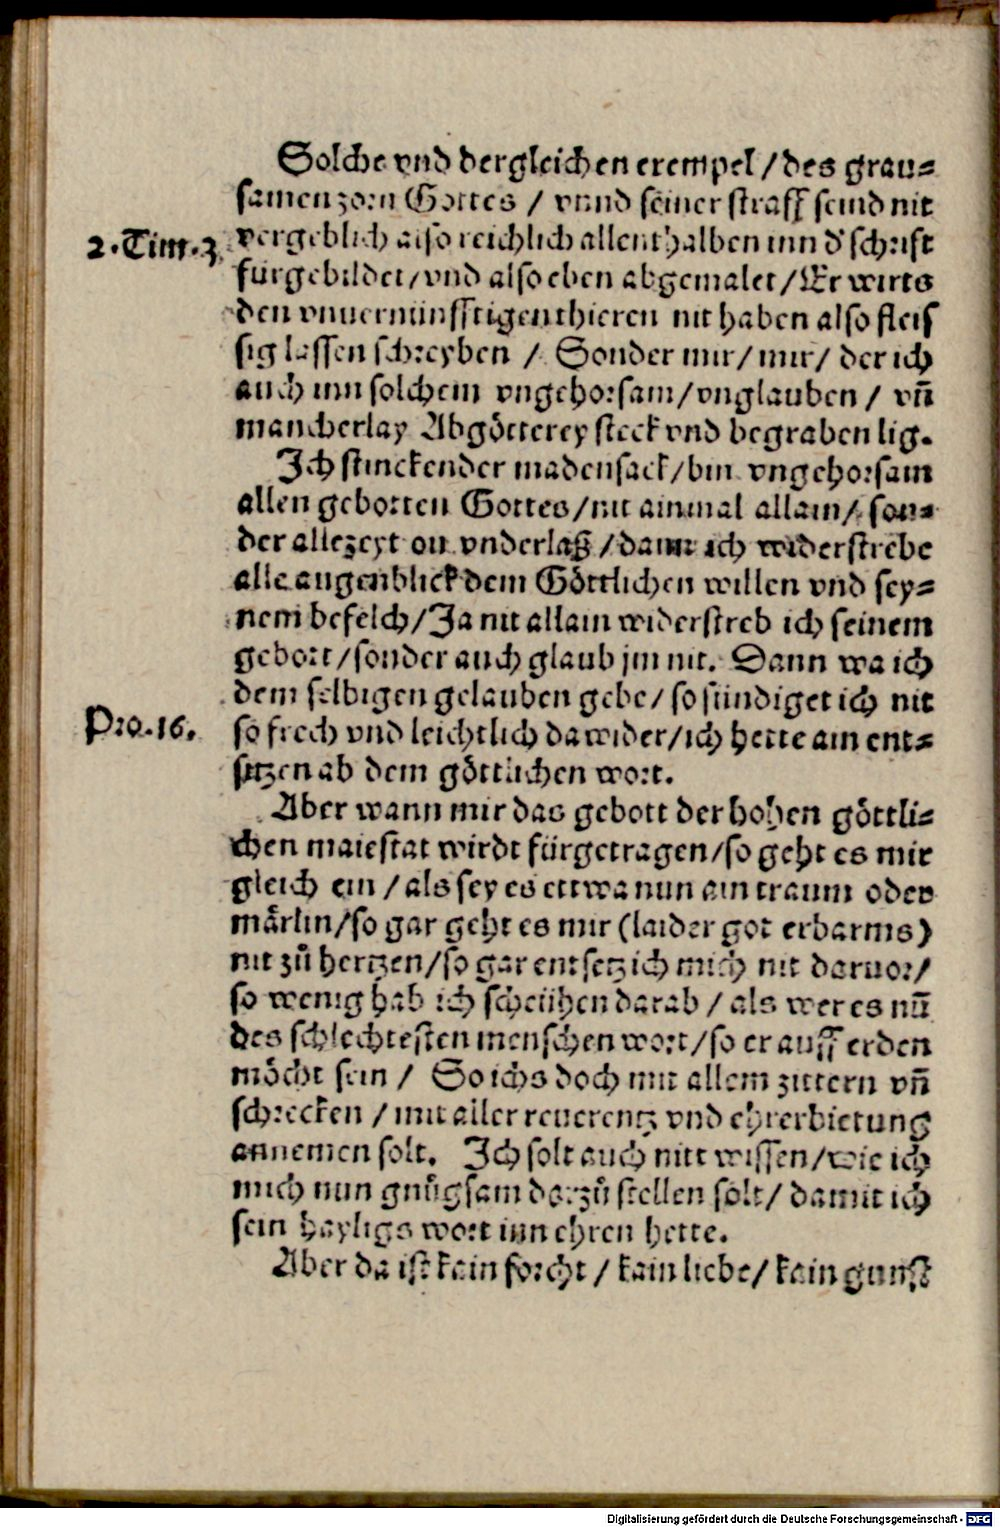 Solche vnd dergleichen exempel / des grau⸗
samen zorn Gottes / vnnd seiner straff seind nit
2. Tim. 3. vergeblich also reichlich allenthalben inn d' schrift
fürgebildet / vnd also eben abgemalet / Er wirts
den vnuernünfftigen thieren nit haben also fleis
sig lassen schreyben / Sonder mir / mir / der ich
auch inn solchem vngehorsam / vnglauben / vn̄
mancherlay Abgötterey steck vnd begraben lig.
Ich stinckender madensack / bin vngehorsam
allen gebotten Gottes / nit ainmal allain / son⸗
der allezeyt on vnderlaß / dann ich widerstrebe
alle augenblick dem Göttlichen willen vnd sey⸗
nem befelch / Ja nit allain widerstreb ich seinem
gebott / sonder auch glaub jm nit. Dann wa ich
dem selbigen gelauben gebe / so sündiget ich nit
Pro. 16. so frech vnd leichtlich dawider / ich hette ain ent⸗
setzen ab dem göttlichen wort.
Aber wann mir das gebott der hohen göttli⸗
chen maiestat wirdt fürgetragen / so geht es mir
gleich ein / als sey es ettwa nun ain traum oder
mårlin / so gar geht es mir (laider got erbarms)
nit zů hertzen / so gar entsetz ich mich nit daruor /
so wenig hab ich scheühen darab / als wer es nū
des schlechtesten menschen wort / so er auff erden
möcht sein / So ichs doch mit allem zittern vn̄
schrecken / mit aller reuerentz vnd ehrerbietung
annemen solt. Ich solt auch nitt wissen / wie ich
mich nun gnůgsam darzů stellen solt / damit ich
sein hayligs wort inn ehren hette.
Aber da ist kain forcht / kain liebe / kain gunst
Digitalisierung gefördert durch die Deutsche Forschungsgemeinschaft - DFG